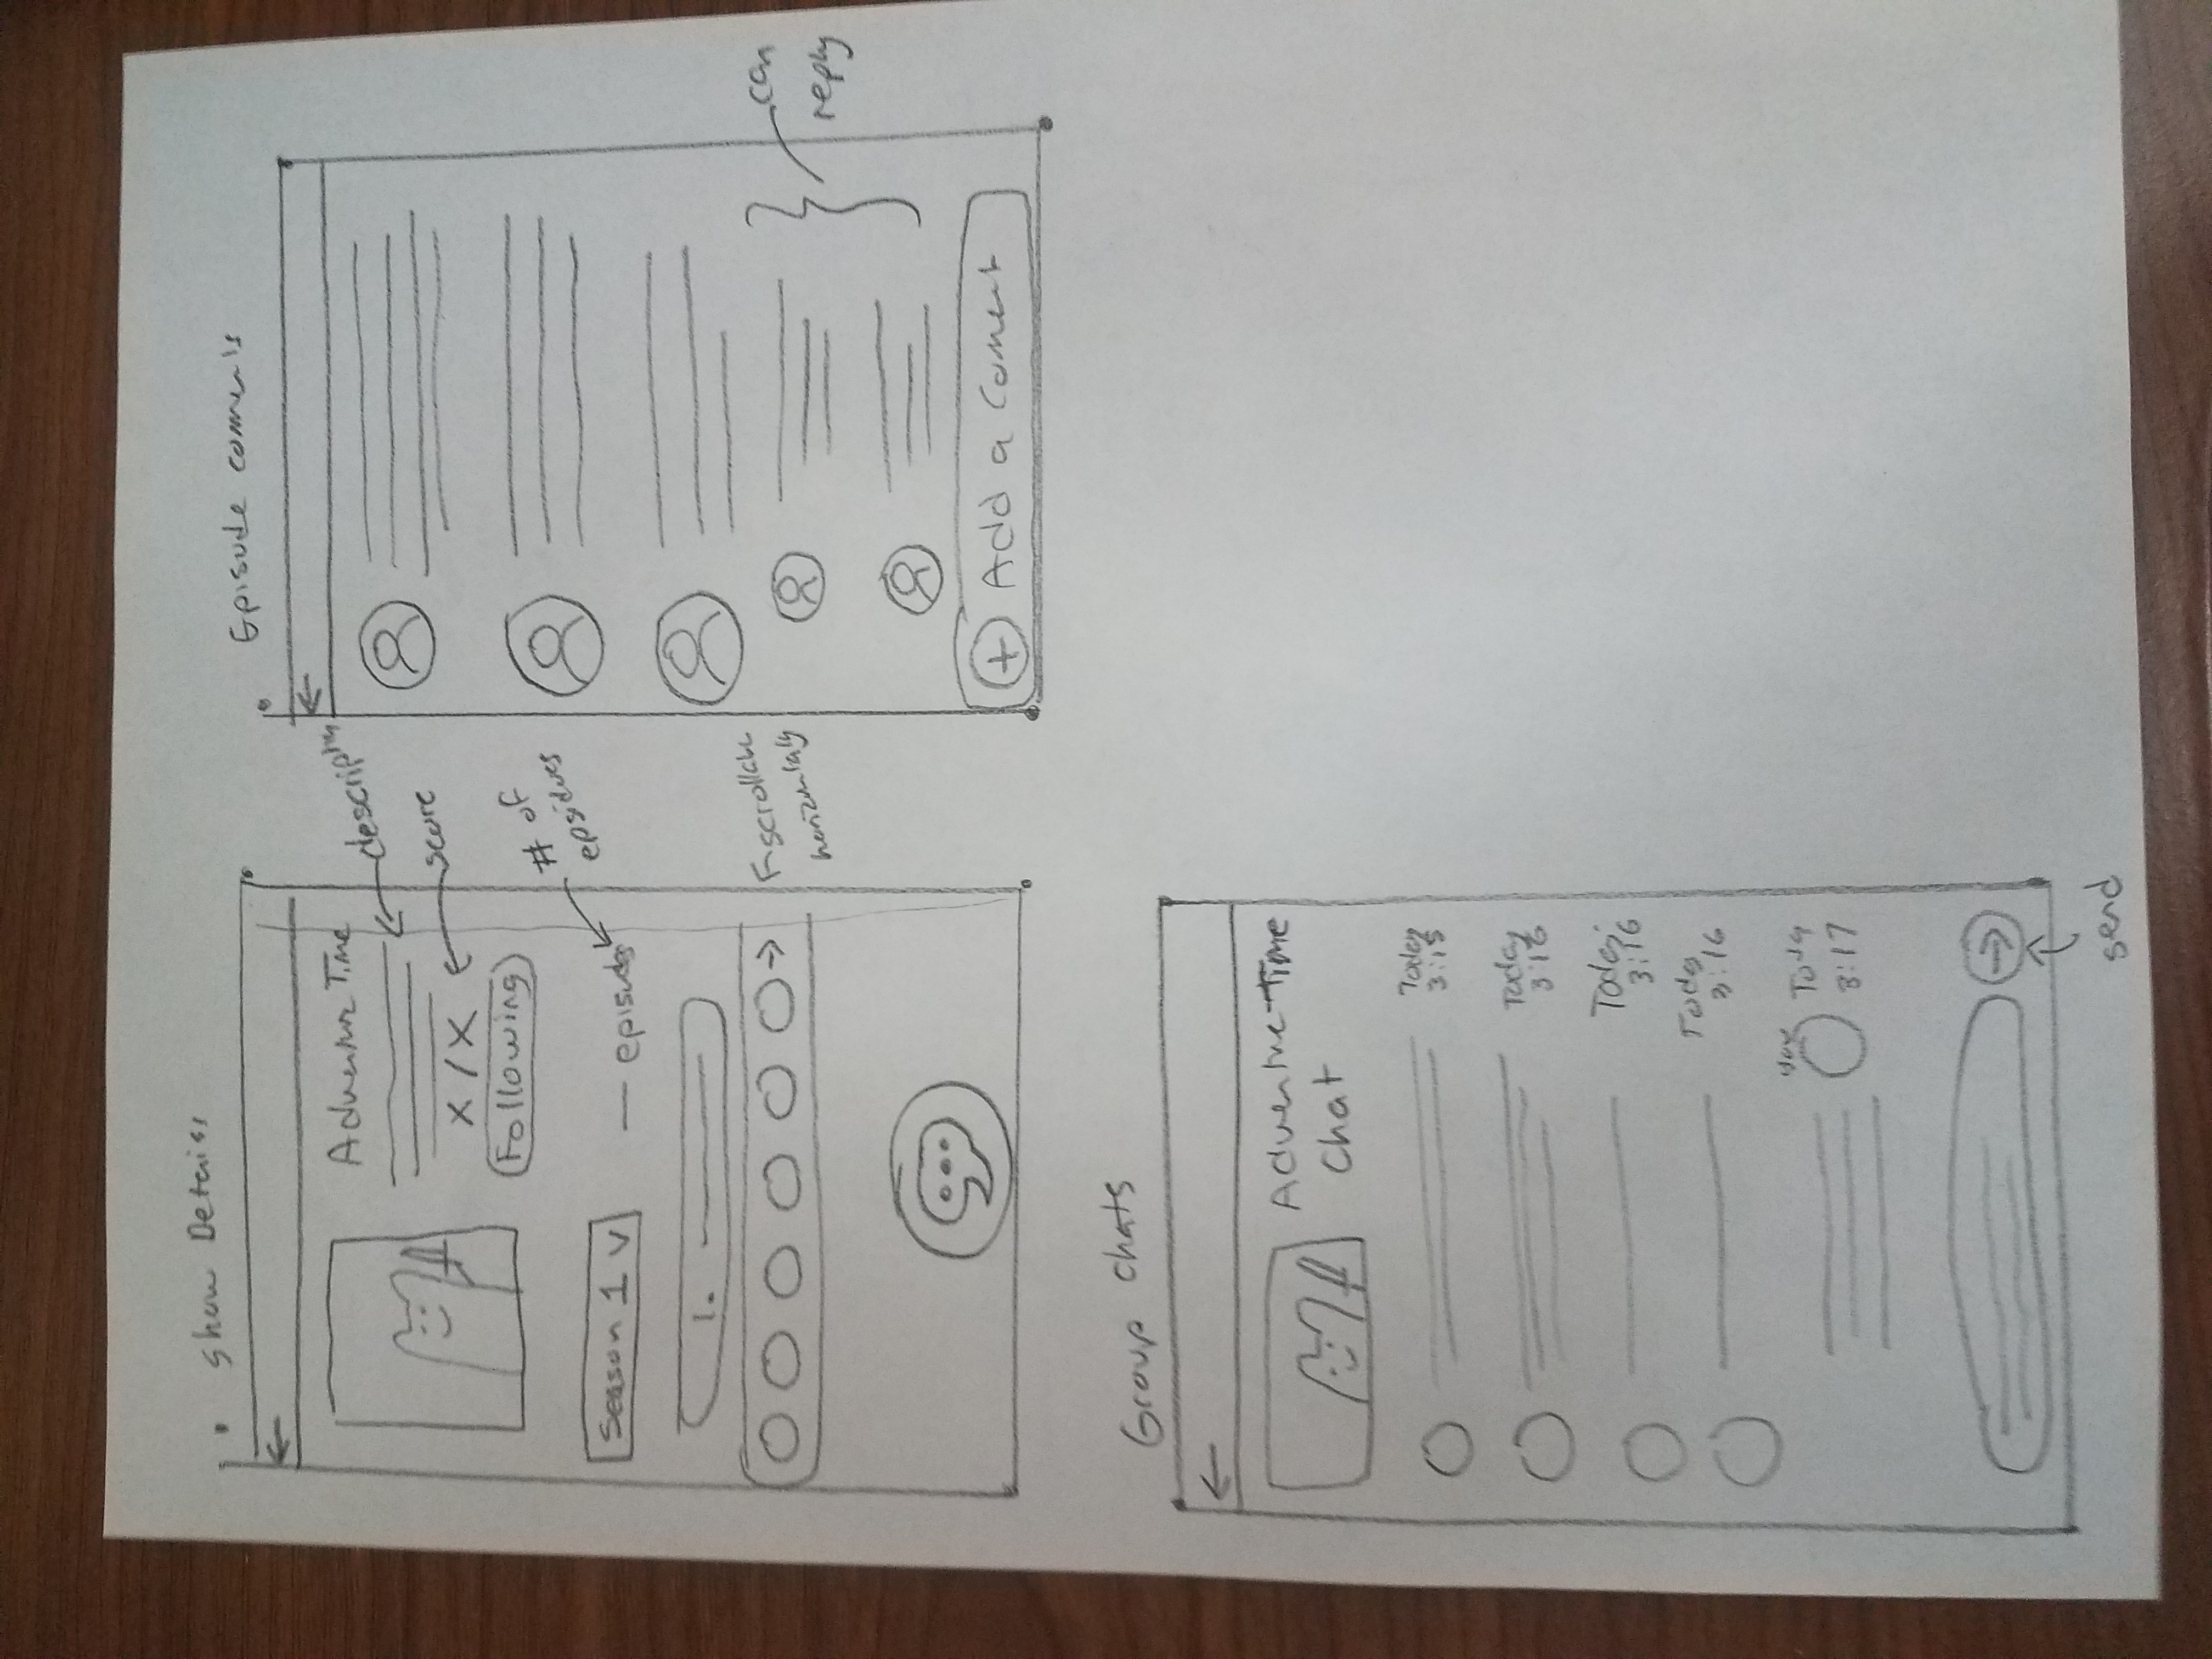 Show Details
Adventure Time
description
score
X / X
Following
# of
epsidoes
Season 1 v
— episodes
1.
scrollable
horizontaly
Episode comments
can
reply
+ Add a Coment
Group chats
Adventure Time
Chat
Today
3:15
Today
3:16
Today
3:16
Today
3:16
you
Today
3:17
send